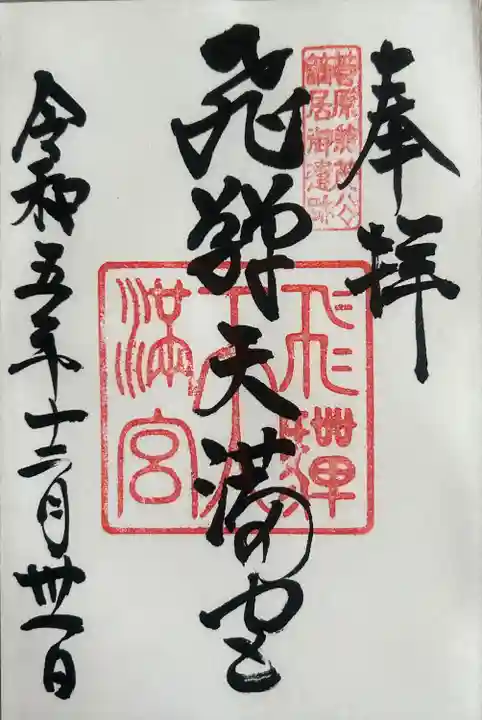 奉拝
菅原兼茂公
謫居御遺跡
飛騨天満宮
飛騨天満宮
令和五年十二月卅一日